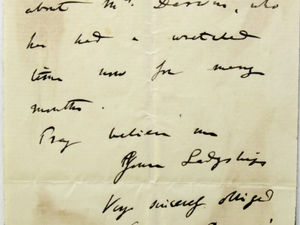 about Mrs. Darwin, who
has had a wretched
time now for many
months.
Pray believe me
Your Ladyships
Very sincerely obliged